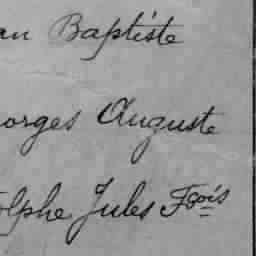 an Baptiste
orges Auguste
olphe Jules Fçois